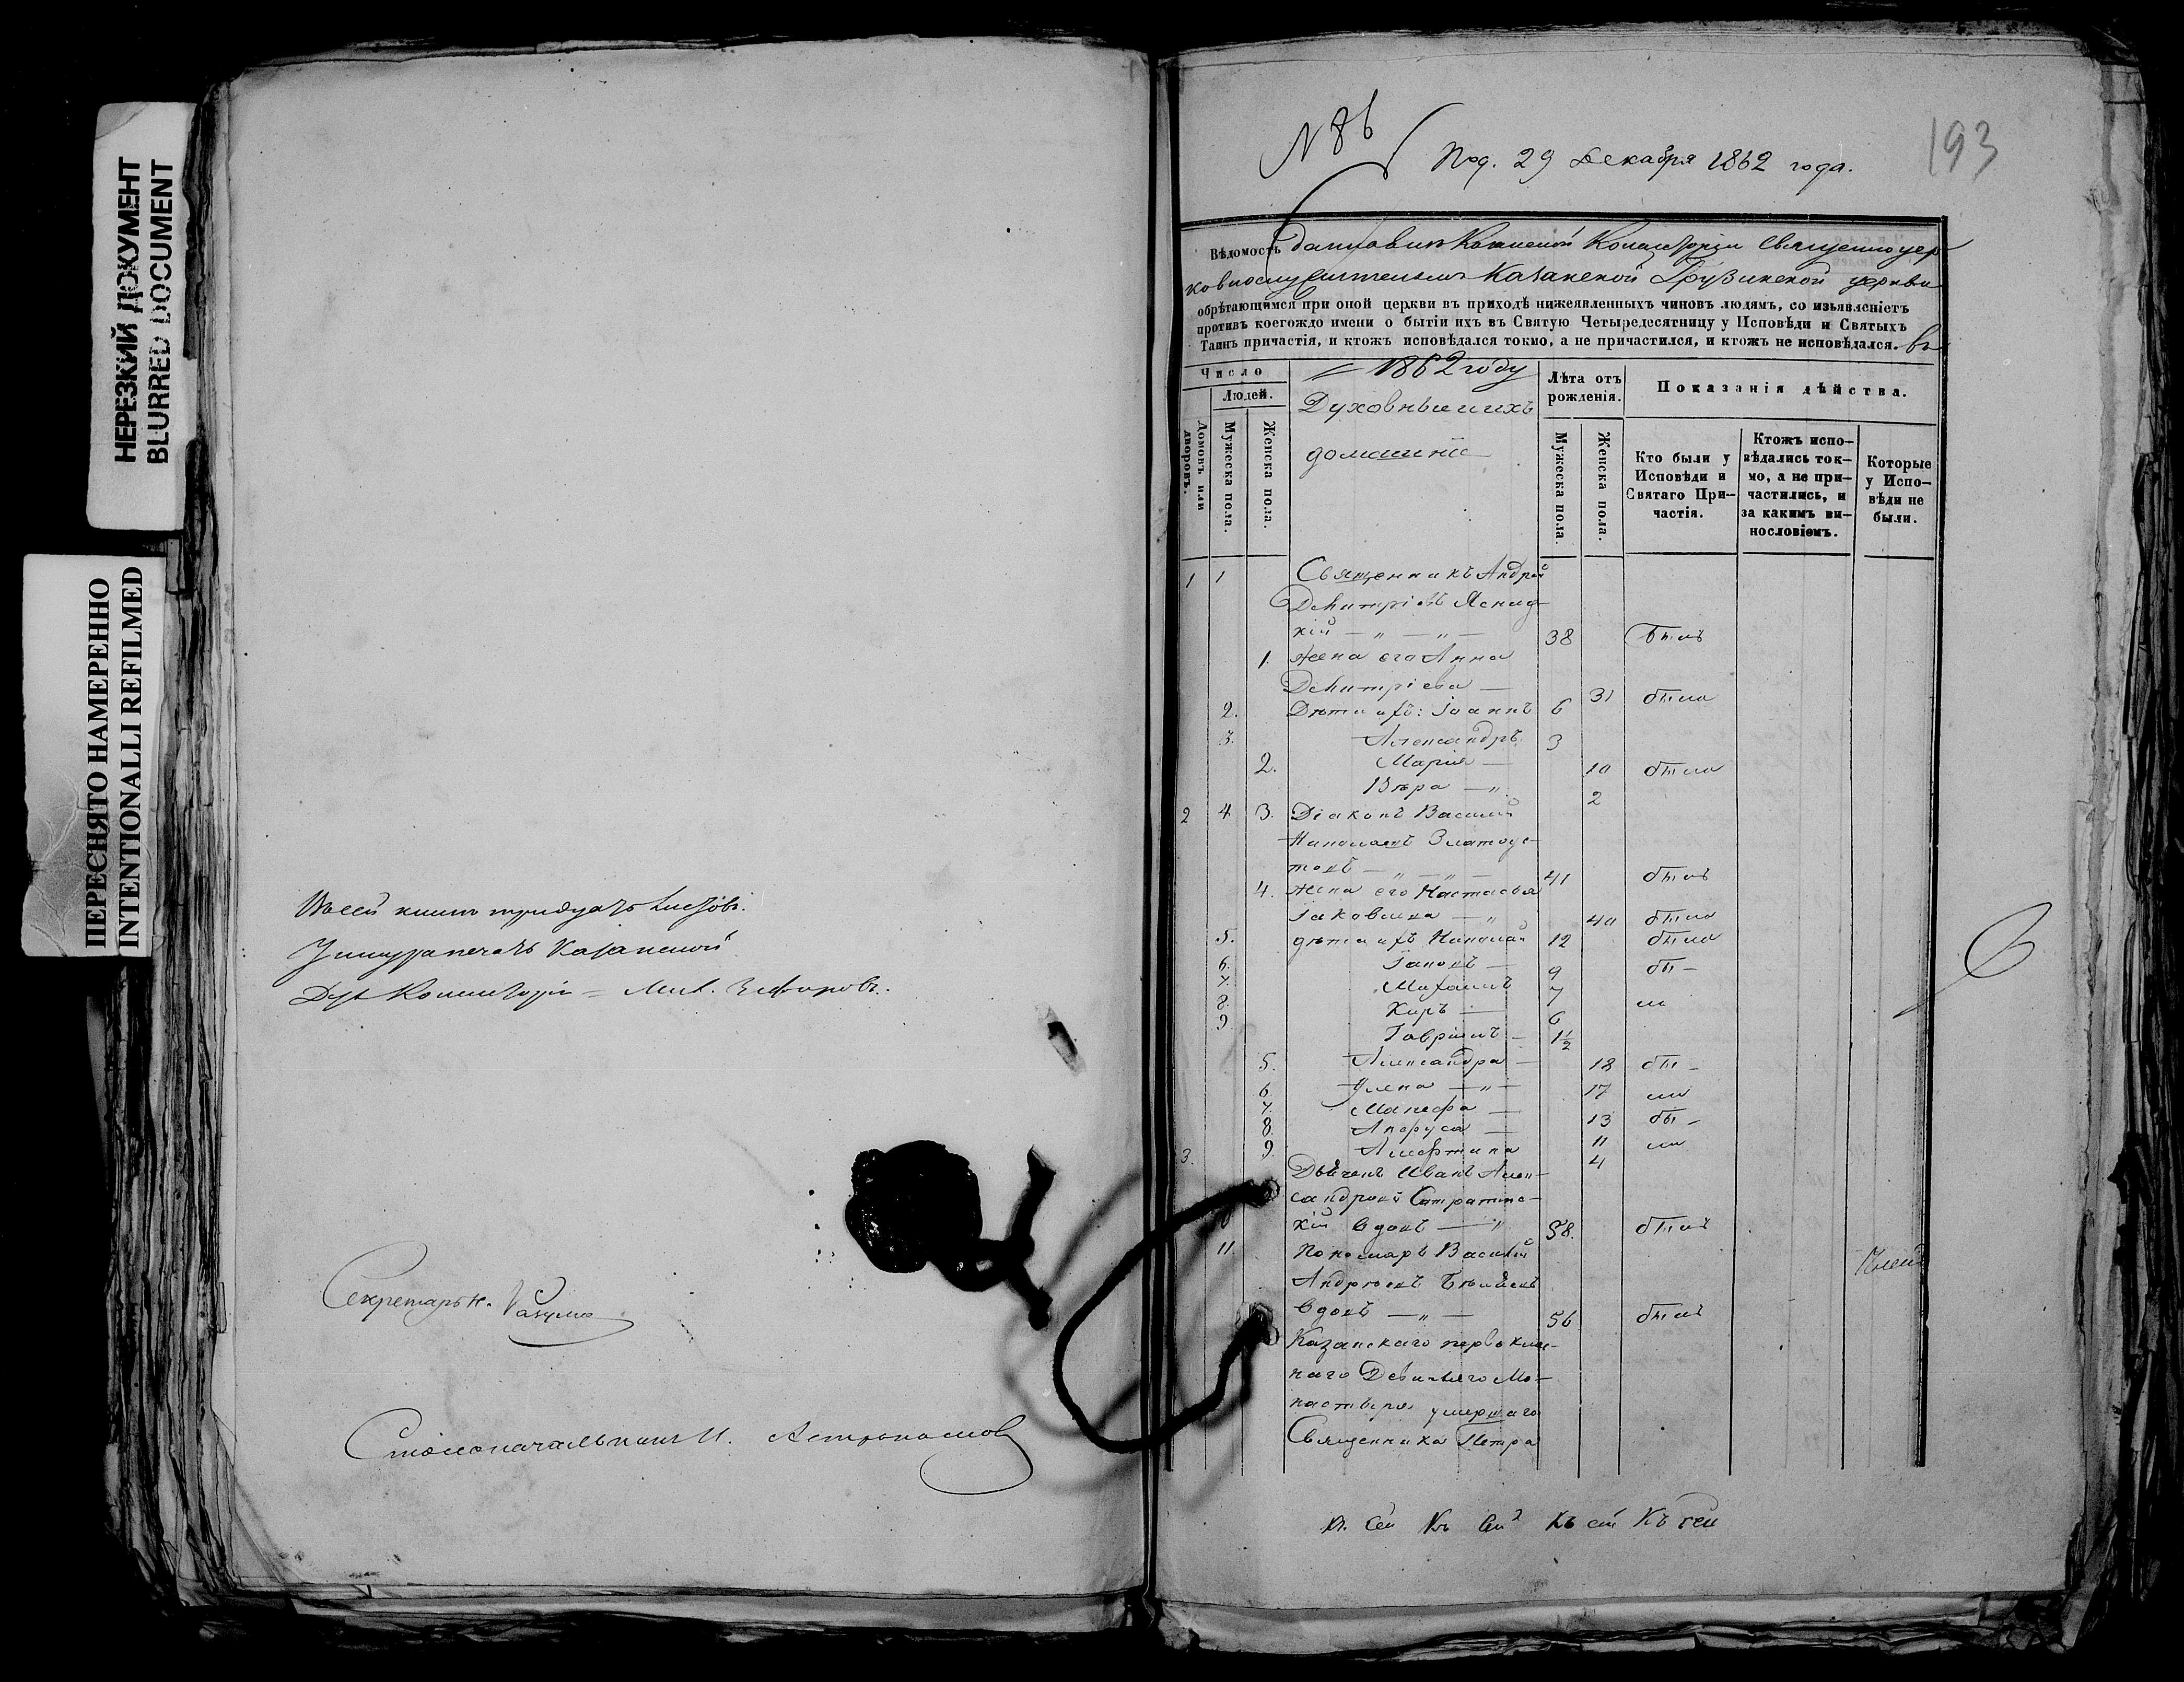 НЕРЕЗКИЙ ДОКУМЕНТ
BLURRED DOCUMENT
ПЕРЕСНЯТО НАМЕРЕННО
INTENTIONALLI REFILMED
Въ сей книгѣ тридцать листовъ.
У шнура печать Казанской
Дух. Консисторіи
Секретарь Н.
Столоначальникъ И. Астрономовъ
N 86
Под. 29 Декабря 1862 года.
193
Вѣдомость данная изъ Консисторіи Священноцер
ковнослужителямъ Казанской Грузинской церкви
обрѣтающимся при оной церкви въ приходѣ нижеявленныхъ чиновъ людямъ, со изъявленіетъ
противъ коегождо имени о бытіи ихъ въ Святую Четыредесятницу у Исповѣди и Святыхъ
Таинъ причастія, и ктожъ исповѣдался токмо, а не причастился, и ктожъ не исповѣдался. въ
Число
Людей.
Домовъ или дворовъ.
Мужеска пола.
Женска пола.
1862 году
Духовные и ихъ
домашніе
Лѣта отъ рожденія.
Мужеска пола.
Женска пола.
Показанія дѣйства.
Кто были у Исповѣди и Святаго При—частія.
Ктожъ испо—вѣдались ток—мо, а не при—частились, и за какимъ ви—нословіемъ.
Которые у Испо—вѣди не были.
1 1 Священникъ Андрей
Димитріевъ
кій — „ — „ — 38 былъ
1. Жена его Анна
Димитріева — 31 была
2. Дѣти ихъ: Іоаннъ 6
3. Александръ 3
2. Марія — 10 была
Вѣра — „ 2
2 4 3. Діаконъ Василій
Николаевъ Златоус-
товъ — „ — „ — 41 былъ
4. Жена его Настасья
Іаковлева — „ 40 была
5. дѣти ихъ Николай 12 были
6. Іаковъ — 9 бы —
7. Михаилъ 7 ли
8. Киръ — 6
9 Гавріилъ — 1½
5. Александра — 18 бы —
6. Улена — „ — 17 ли
7. Манефа — 13 бы —
8. Анфуса — 11 ли
9. Алефтина 4
3. Дьячекъ Иванъ Алек-
сандровъ
кій вдовъ — „ 58. былъ
11. Пономарь Василій
Андреевъ
вдовъ — „ — 56 былъ
Казанскаго первоклас-
наго Дѣвичьяго Мо-
настыря умершаго
Священника Петра
Къ сей Къ сей Къ сей Къ сей